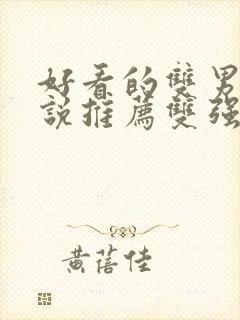 好看的雙男
說推薦雙强
黃蓓佳